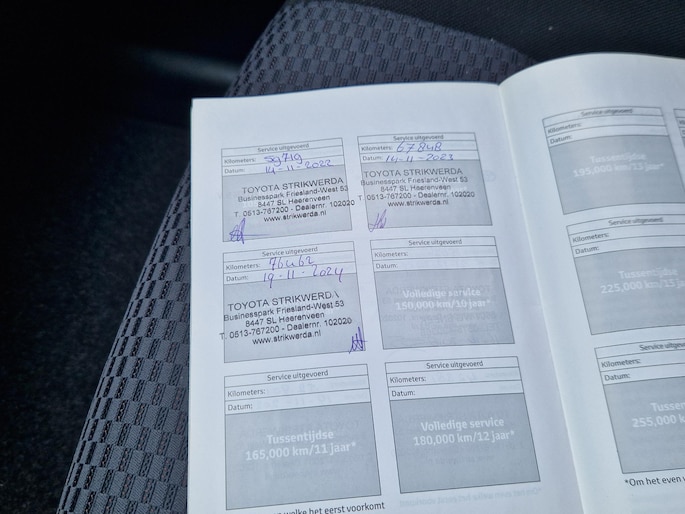 Service uitgevoerd
Kilometers: 59719
Datum: 14-11-2022
TOYOTA STRIKWERDA
Businesspark Friesland-West 53
8447 SL Heerenveen
T. 0513-767200 - Dealernr. 102020
www.strikwerda.nl
Service uitgevoerd
Kilometers: 67848
Datum: 14-11-2023
TOYOTA STRIKWERDA
Businesspark Friesland-West 53
8447 SL Heerenveen
T. 0513-767200 - Dealernr. 102020
www.strikwerda.nl
Service uitgevoerd
Kilometers: 76462
Datum: 19-11-2024
TOYOTA STRIKWERDA
Businesspark Friesland-West 53
8447 SL Heerenveen
T. 0513-767200 - Dealernr. 102020
www.strikwerda.nl
Service uitgevoerd
Kilometers:
Datum:
Volledige service
150,000 km/10 jaar*
Service uitgevoerd
Kilometers:
Datum:
Tussentijdse
165,000 km/11 jaar*
Service uitgevoerd
Kilometers:
Datum:
Volledige service
180,000 km/12 jaar*
welke het eerst voorkomt
Service uitgevoerd
Kilometers:
Datum:
Tussentijdse
195,000 km/13 jaar*
Service uitgevoerd
Kilometers:
Datum:
Tussentijdse
225,000 km/15 jaar*
Service
Kilometers:
Datum:
255,000
*Om het even